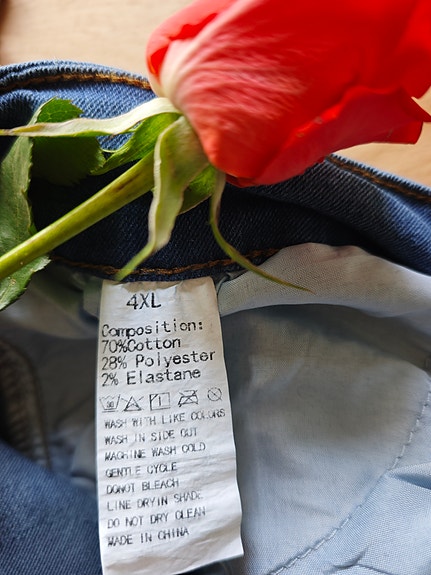 4XL
Composition:
70%Cotton
28% Polyester
2% Elastane
WASH WITH LIKE COLORS
WASH IN SIDE OUT
MACHINE WASH COLD
GENTLE CYCLE
DONOT BLEACH
LINE DRYIN SHADE
DO NOT DRY CLEAN
MADE IN CHINA